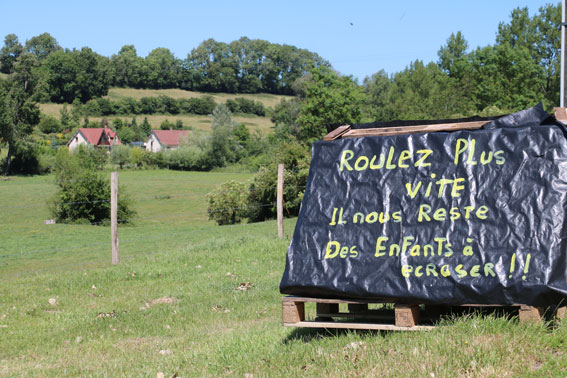 Roulez Plus
vite
Il nous Reste
Des Enfants à
ecraser !!